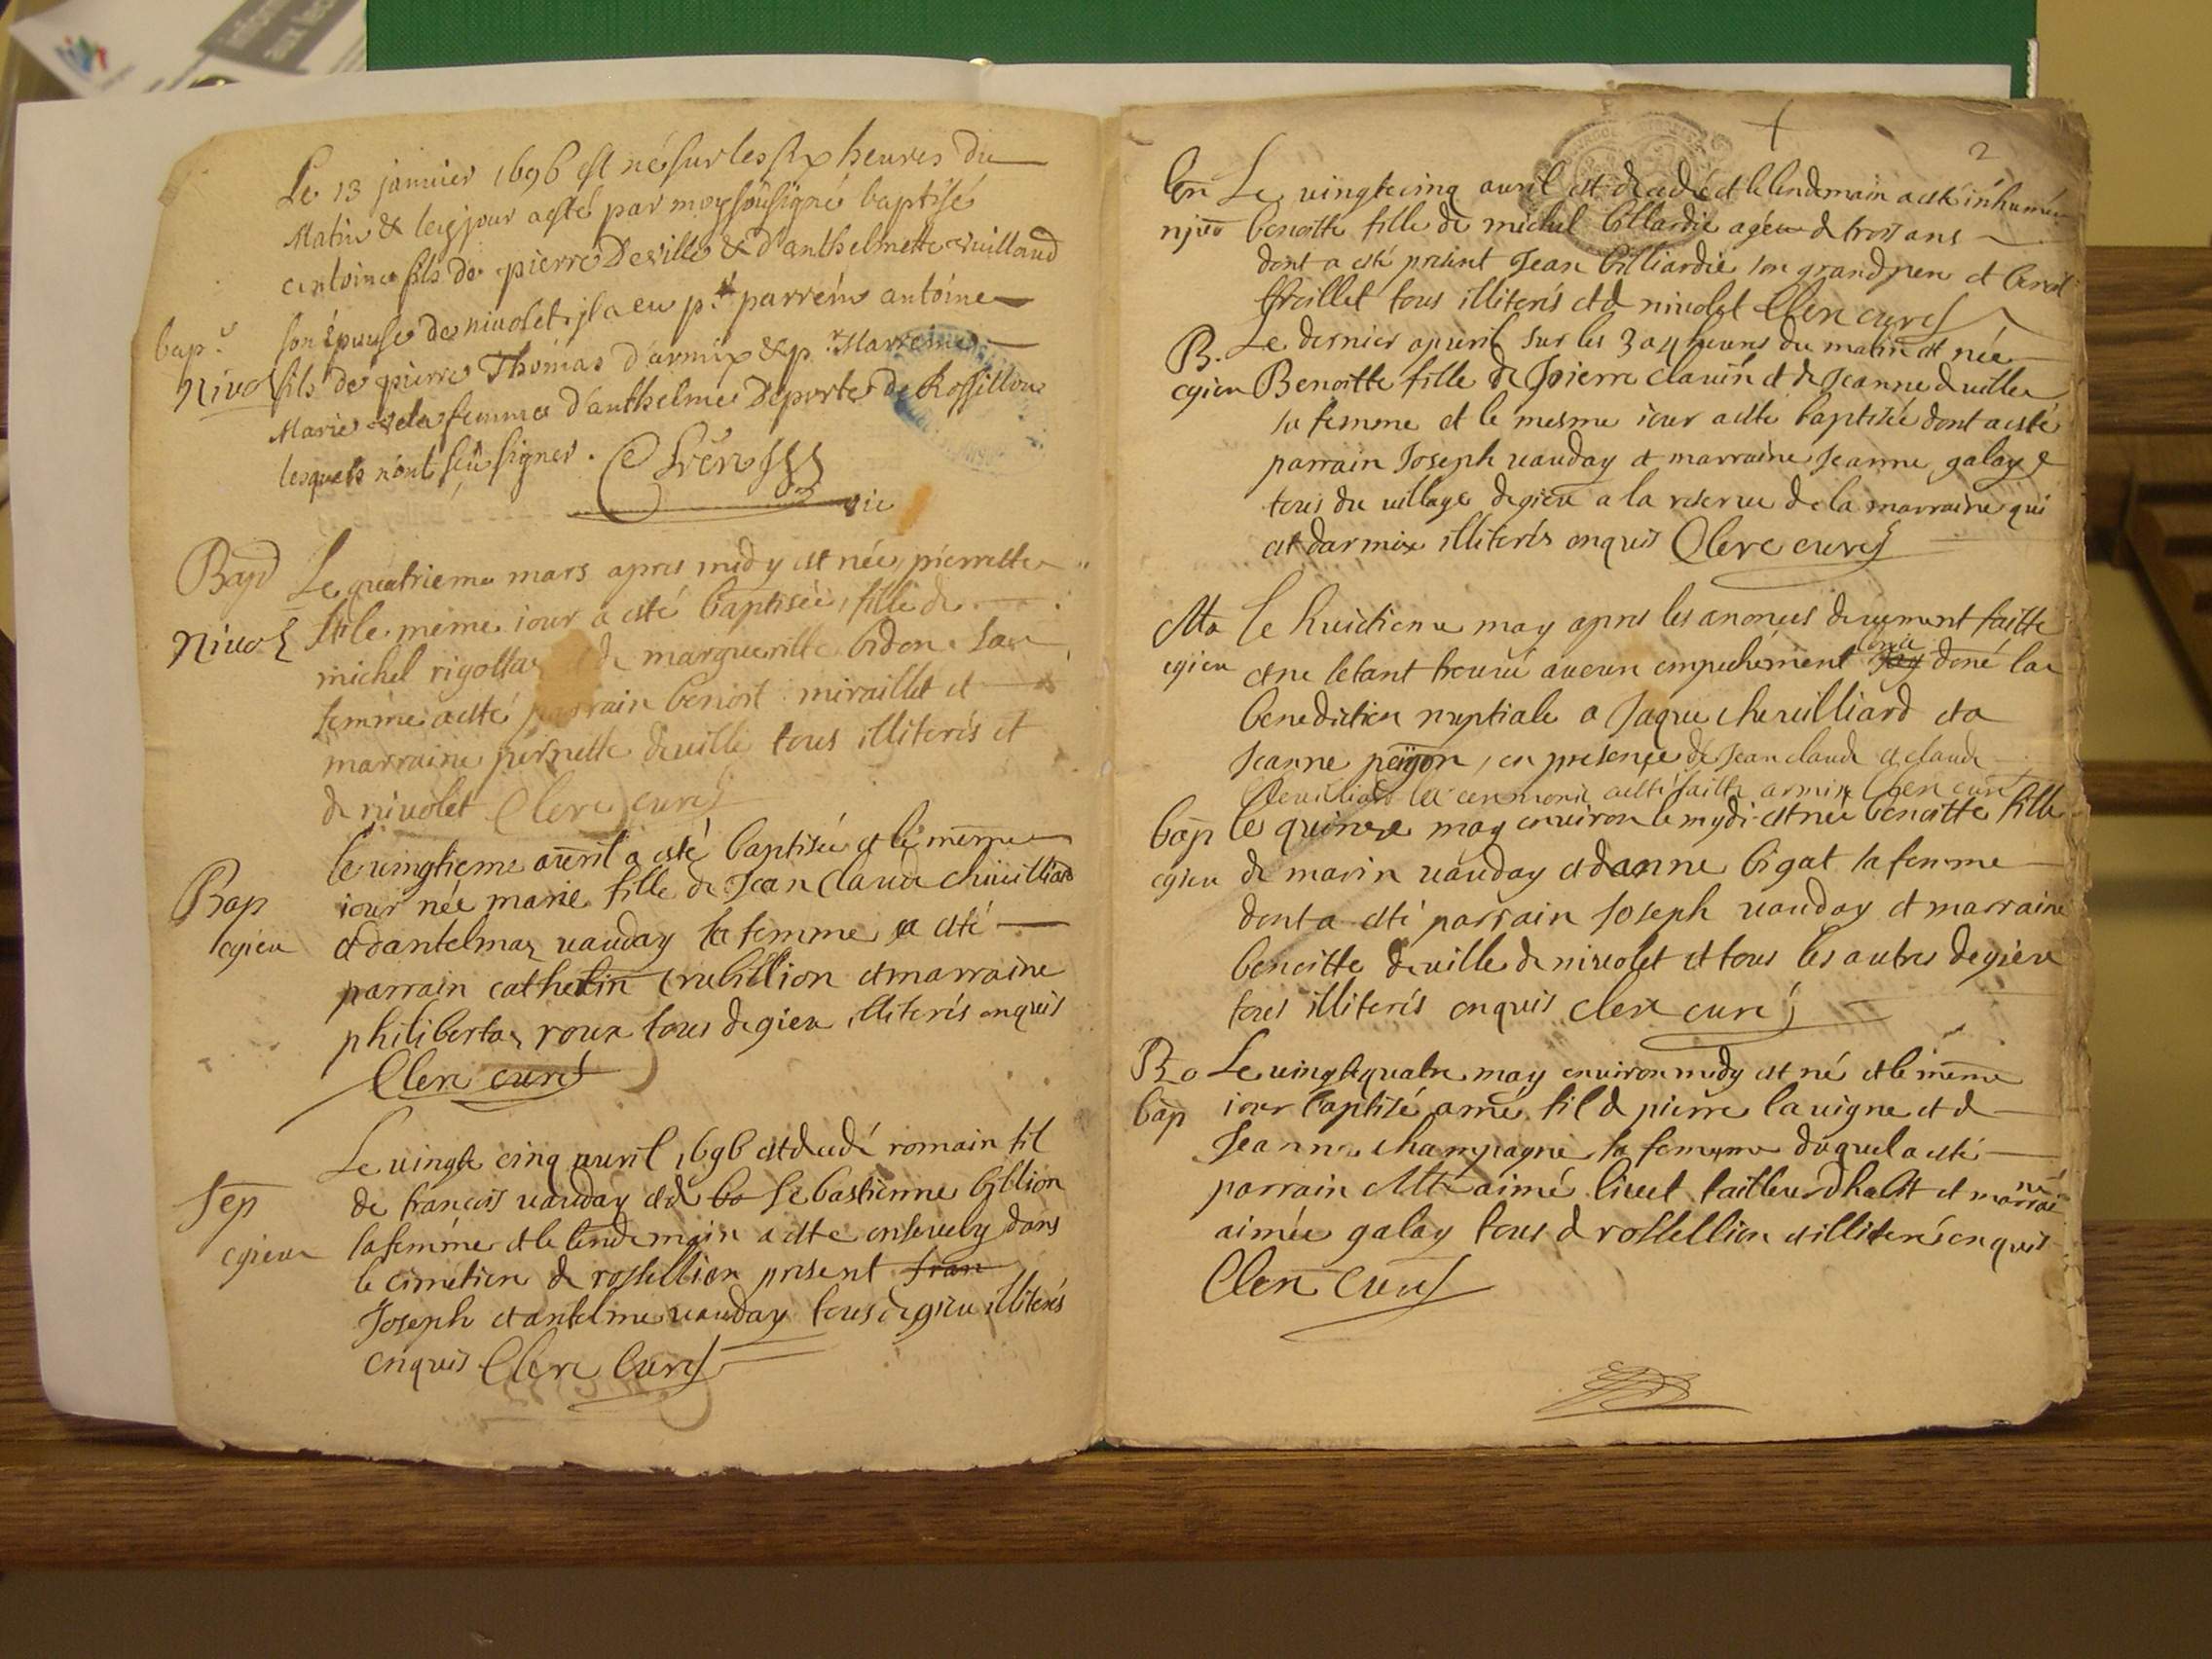 Le 13 janvier 1696 est né sur les six heures du
Matin & le jour a esté par moy soûsigné baptisé
antoine fils de pierre Deville & d'anthelmette vuillaud
son épouse de nivolet, il a eu pr parrein antoine
bap.
Nivol fils de pierre Thomas d'armix & pr Marreine
Marie vela femme d'anthelme Deporte de Rossillon
lesquels n'ont sçû signer.
vic
Bap Le quatrieme mars apres midy est née pierrette
Nivol et le méme iour a esté baptisée, fille de
michel rigollas de margueritte bidon sa
femme a esté parrain benoist miraillet et
marraine pernette deville tous illiterés et
de nivolet Clerc curé
le vingtieme avril a esté baptisée et le méme
Bap iour née marie fille de Jean Claude chuilliard
egieu et dantelmaz vauday sa femme a esté
parrain cathelin trubillion et marraine
philiberta roux tous degieu illiterés enquis
Clerc curé
Le vingte cinq avril 1696 est decedé romain fil
Sep de francois vauday et de ba Sebastienne billion
egieu sa femme et le lendemain a este ensevely dans
le cimetiere de rossellion present fran
Joseph et antelme vauday tous degieu illiterés
enquis Clerc Curé
2
En Le vingtecinq avril est decedée et le lendemain a esté inhumée
benoitte fille de michel billardie agée de trois ans
dont a esté present Jean billiardie son grand pere et benoit
troillet tous illiterés et de nivolet Clerc curé
B. Le dernier apvril sur les 3 a 4 heures du matin est née
egieu Benoitte fille de Pierre clavin et de Jeanne deville
sa femme et le mesme iour a esté baptisée dont a esté
parrain Joseph vauday et marraine Jeanne galay
tous du village degieu a la reserve de la marraine qui
est darmix illiterés enquis Clerc curé
Ma le huictieme may apres les anonces deuement faitte
egieu et ne setant trouvé aucun empechement jay doné la
benediction nuptiale a Jaque chevilliard et a
Jeanne peyson, en presence de Jean claude et claude
chevilliard la ceremonie a esté faitte armix Clerc curé
bap le quinze may environ le mydi est née benoitte fille
egieu de marin vauday et danne bigat sa femme
dont a esté parrain Joseph vauday et marraine
benoitte deville de nivolet et tous les autres degieu
tous illiterés enquis Clerc curé
Ro Le vingtequatre may environ midy est né et le méme
bap iour baptisé amé fil de pierre lavigne et de
Jeanne champagne sa femme duquel a esté
parrain Mtre aimé livet tailleur dhabit et marraine
aimée galay tous de rossellion et illiterés enquis
Clerc Curé